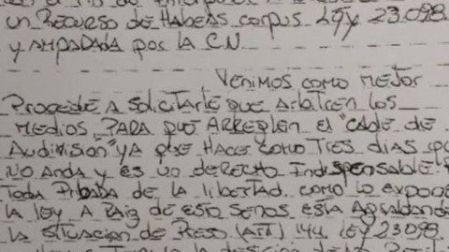 un Recurso de Habeas corpus Ley 23.098
y AMPADADA por la CN
Venimos como Mejor
Procede A Solicitarle que Arbitren los
Medios PARA que ARREGLEN el "CABLE de
Audivision" YA que HACE COMO Tres dias
NO ANDA y es un derecho Indispensable
Toda Pribada de la libertad como lo expone
la ley A Raiz de esto senos esta AgraBando
la situacion de Preso (ART) 144 ley 23098